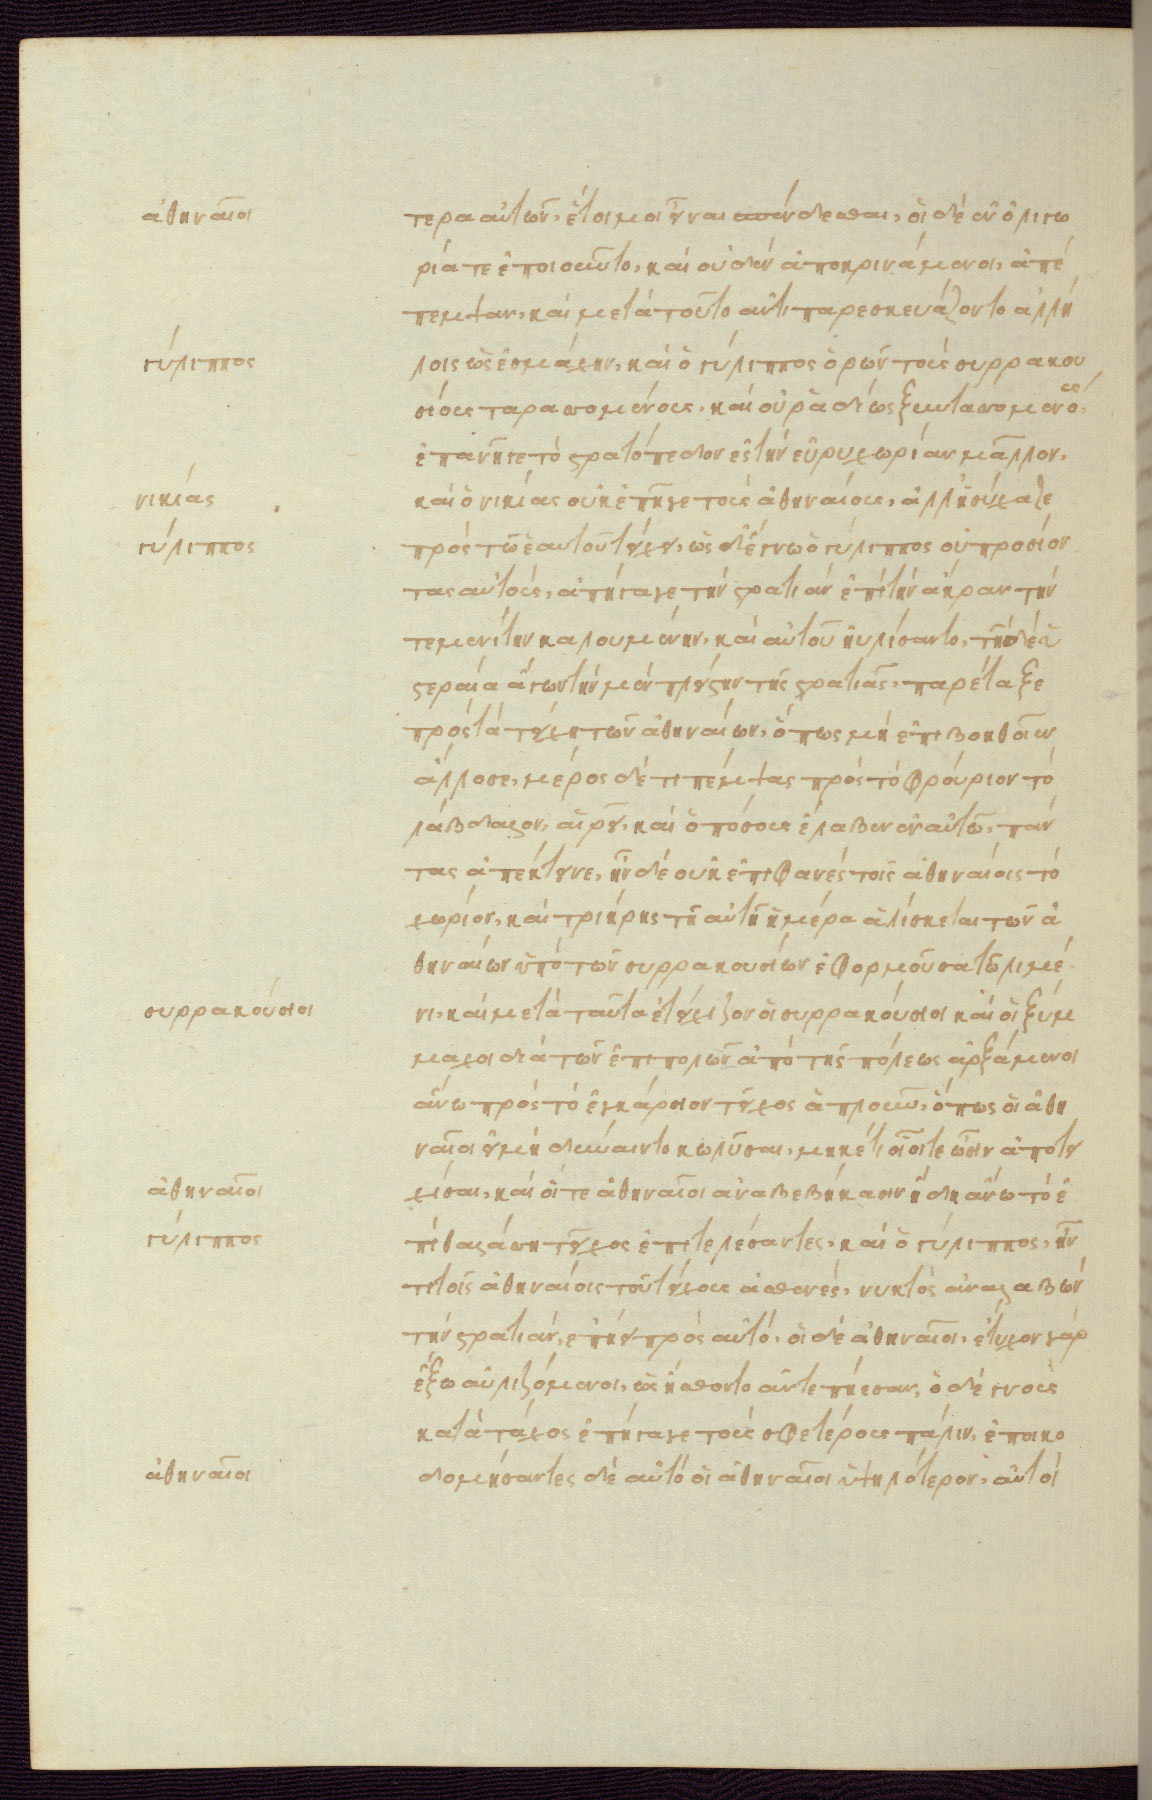 ἀθηναῖοι
τερα αὐτῶν, ἑτοῖμοι εἶναι σπένδεσθαι, οἱ δὲ ἐν ὀλιγω
ρίᾳ τε ἐποιοῦντο, καὶ οὐδὲν ἀποκρινάμενοι, ἀπέ
πεμψαν, καὶ μετὰ τοῦτο ἀντιπαρεσκευάζοντο ἀλλή
γύλιππος
λοις ὡς ἐς μάχην, καὶ ὁ γύλιππος ὁρῶν τοὺς συρρακου
σίους ταρασσομένους, καὶ οὐ ῥᾳδίως ξυντασσομένους,
ἐπανῆγε τὸ στρατόπεδον ἐς τὴν εὐρυχωρίαν μᾶλλον,
νικίας
καὶ ὁ νικίας οὐκ ἐπῆγε τοὺς ἀθηναίους, ἀλλ' ἡσύχαζε
γύλιππος
πρὸς τῷ ἑαυτοῦ τείχει, ὡς δ' ἔγνω ὁ γύλιππος οὐ προσιόν
τας αὐτούς, ἀπήγαγε τὴν στρατιὰν ἐπὶ τὴν ἄκραν τὴν
τεμενίτην καλουμένην, καὶ αὐτοῦ ηὐλίσαντο, τῇ δὲ ὑ
στεραίᾳ ἄγων τὴν μὲν πλείστην τῆς στρατιᾶς, παρέταξε
πρὸς τὰ τείχη τῶν ἀθηναίων, ὅπως μὴ ἐπιβοηθοῖεν
ἄλλοσε, μέρος δέ τι πέμψας πρὸς τὸ φρούριον τὸ
λάβδαλον, αἱρεῖ, καὶ ὁπόσους ἔλαβεν ἐν αὐτῷ, πάν
τας ἀπέκτεινε, ἦν δὲ οὐκ ἐπιφανὲς τοῖς ἀθηναίοις τὸ
χωρίον, καὶ τριήρης τῇ αὐτῇ ἡμέρᾳ ἁλίσκεται τῶν ἀ
θηναίων ὑπὸ τῶν συρρακουσίων ἐφορμοῦσα τῷ λιμέ
συρρακούσιοι
νι, καὶ μετὰ ταῦτα ἐτείχιζον οἱ συρρακούσιοι καὶ οἱ ξύμ
μαχοι διὰ τῶν ἐπιπολῶν ἀπὸ τῆς πόλεως ἀρξάμενοι
ἄνω πρὸς τὸ ἐγκάρσιον τεῖχος ἁπλοῦν, ὅπως οἱ ἀθη
ναῖοι εἰ μὴ δύναιντο κωλῦσαι, μηκέτι οἷοί τε ὦσιν ἀποτει
ἀθηναῖοι
χίσαι, καὶ οἵ τε ἀθηναῖοι ἀναβεβήκασιν ἤδη ἄνω τὸ ἐ
γύλιππος
πὶ θαλάσσῃ τεῖχος ἐπιτελέσαντες, καὶ ὁ γύλιππος, ἦν
τι τοῖς ἀθηναίοις τοῦ τείχους ἀσθενές, νυκτὸς ἀναλαβὼν
τὴν στρατιάν, ἐπῄει πρὸς αὐτό, οἱ δὲ ἀθηναῖοι, ἔτυχον γὰρ
ἔξω αὐλιζόμενοι, ὡς ᾔσθοντο ἀντεπῄεσαν, ὁ δὲ γνοὺς
κατὰ τάχος ἐπήγαγε τοὺς σφετέρους πάλιν, ἐποικο
ἀθηναῖοι
δομήσαντες δὲ αὐτὸ οἱ ἀθηναῖοι ὑψηλότερον, αὐτοὶ